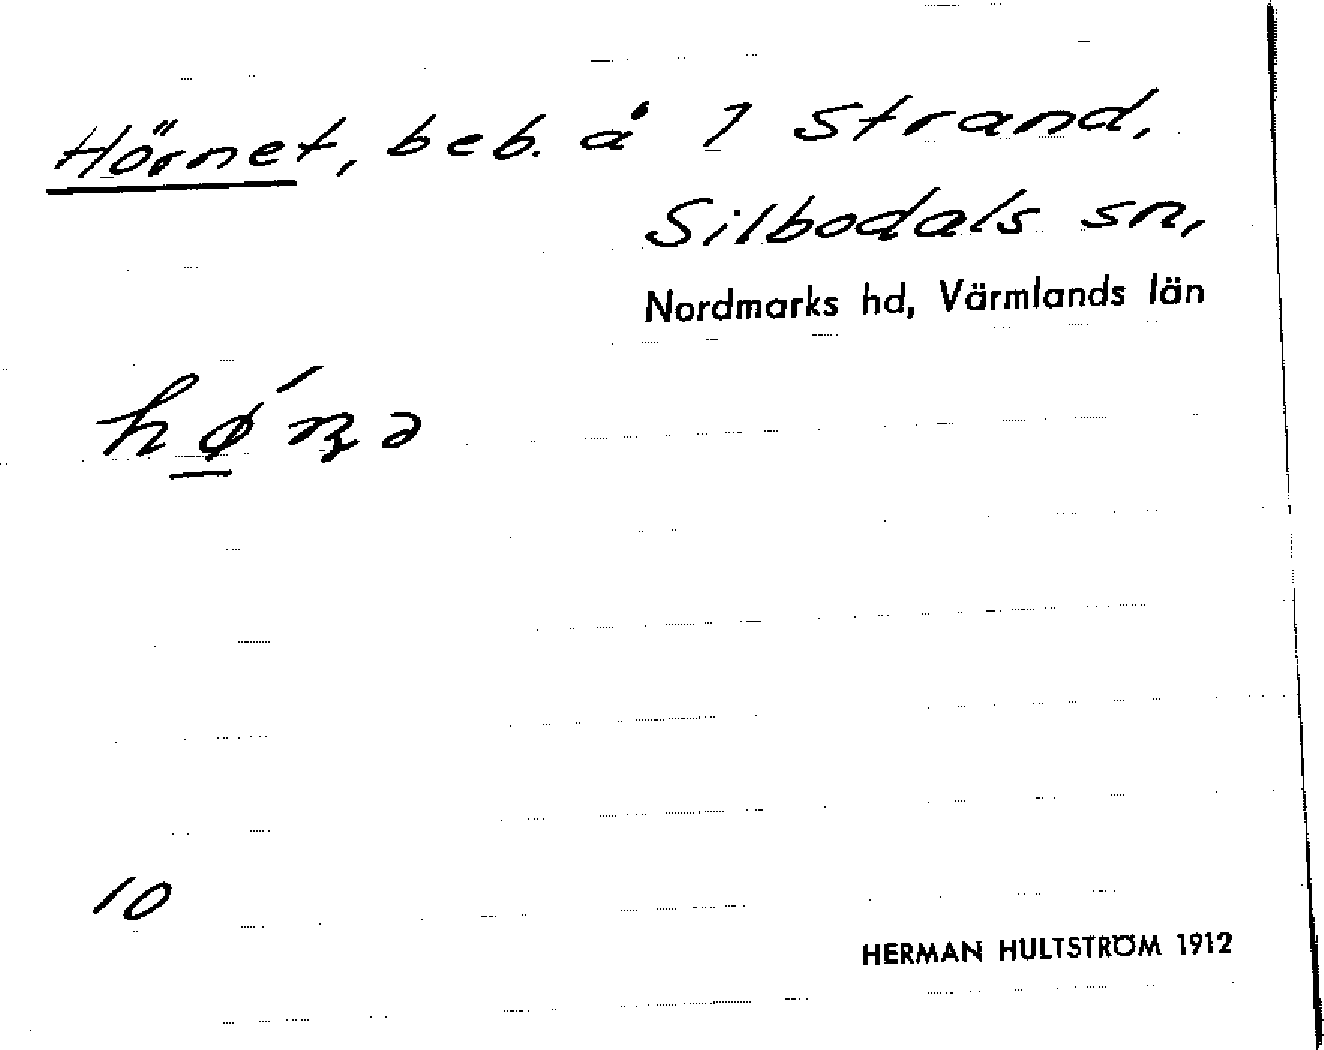 Hörnet, beb. å 1 Strand,
Silbodals sn,
Nordmarks hd, Värmlands län
hǿ̲ɳə
10
HERMAN HULTSTRÖM 1912